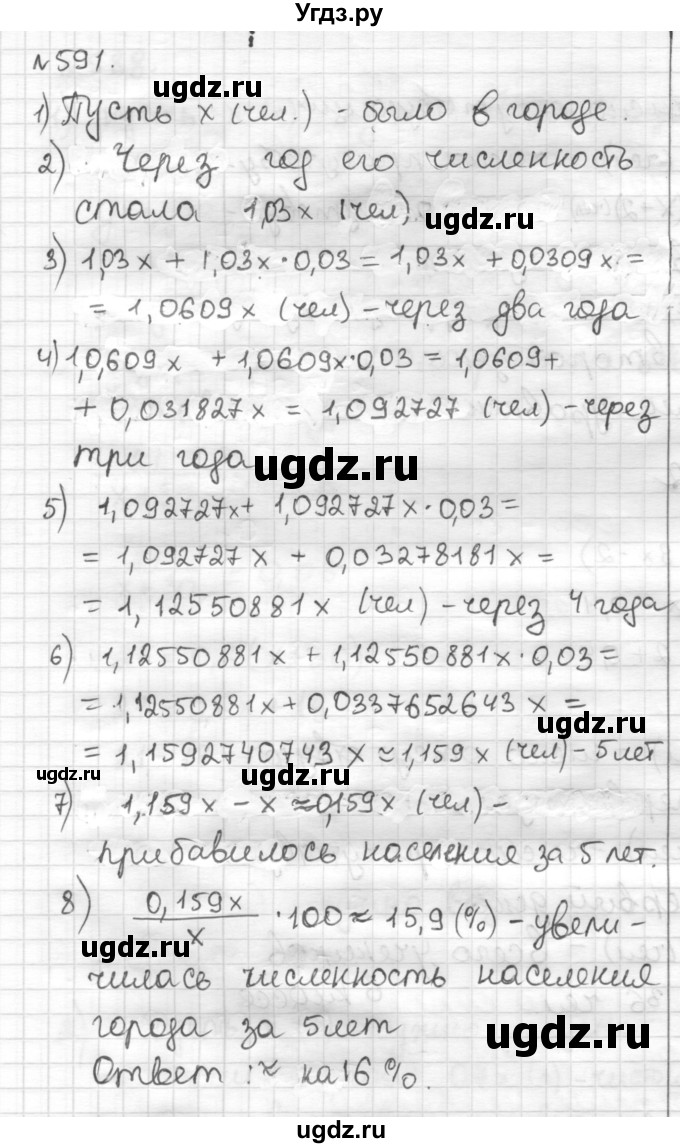 Угдз.ру
№591.
1) Пусть x (чел.) - было в городе.
2) Через год его численность
стала 1,03x (чел).
ugdz.ru
3) 1,03x + 1,03x·0,03 = 1,03x + 0,0309x =
= 1,0609x (чел) - через два года
4) 1,0609x + 1,0609x·0,03 = 1,0609+
+ 0,031827x = 1,092727 (чел) - через
три года
ugdz.ru
5) 1,092727x + 1,092727x·0,03 =
= 1,092727x + 0,03278181x =
= 1,12550881x (чел) - через 4 года
6) 1,12550881x + 1,12550881x·0,03 =
= 1,12550881x + 0,0337652643x =
ugdz.ru
= 1,1592740743x ≈ 1,159x (чел) - 5 лет
ugdz.ru
ugdz.ru
7) 1,159x - x ≈ 0,159x (чел) -
прибавилось населения за 5 лет.
8) 0,159x / x · 100 ≈ 15,9 (%) - увели-
ugdz.ru
чилась численность населения
города за 5 лет
ugdz.ru
Ответ: ≈ на 16 %.
ugdz.ru